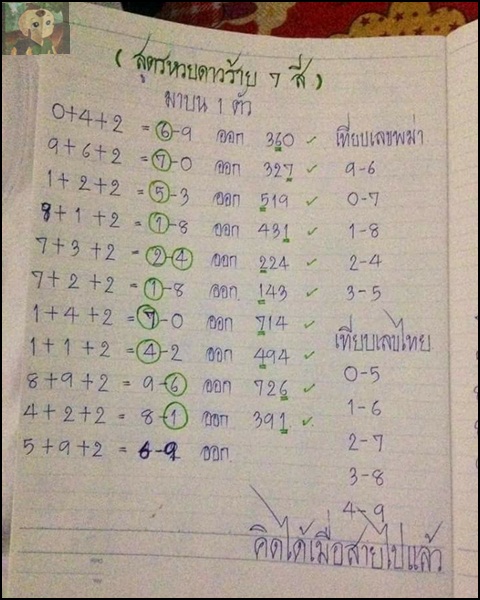 (สูตรหวยดาวร้าย 7 สี)
มาบน 1 ตัว
0+4+2 = 6-9 ออก 360 ✓
9+6+2 = 7-0 ออก 327 ✓
1+2+2 = 5-3 ออก 519 ✓
8+1+2 = 1-8 ออก 431 ✓
7+3+2 = 2-4 ออก 224 ✓
7+2+2 = 1-8 ออก 143 ✓
1+4+2 = 7-0 ออก 714 ✓
1+1+2 = 4-2 ออก 494 ✓
8+9+2 = 9-6 ออก 726 ✓
4+2+2 = 8-1 ออก 391 ✓
5+9+2 = 6-9 ออก
เทียบเลขพม่า
9-6
0-7
1-8
2-4
3-5
เทียบเลขไทย
0-5
1-6
2-7
3-8
4-9
คิดได้เมื่อสายไปแล้ว